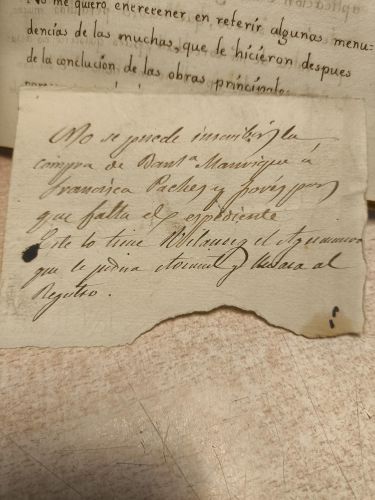 No me quiero encrecener en referir algunas menu-
dencias de las muchas, que se hicieron despues
de la conclucion de las obras principales.
No se puede inscribir la
compra de Bant.ª Manrique á
Francisca Paches y Jovés por
que falta el expediente
Este lo tiene el
que le pedira y llevara al
Registro.